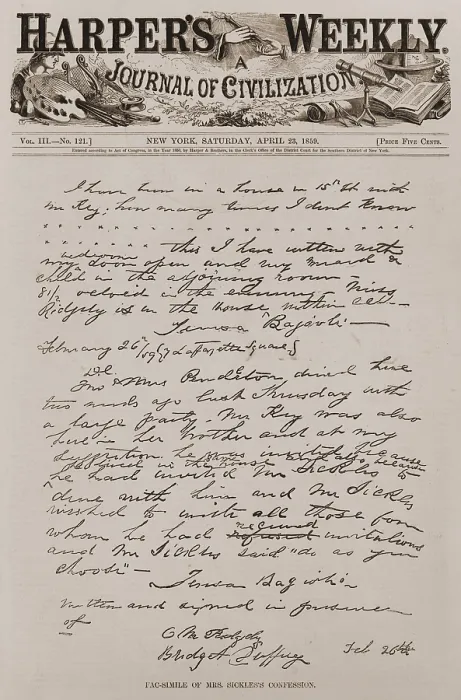 HARPER'S WEEKLY.
A
JOURNAL OF CIVILIZATION
VOL. III.—No. 121.] NEW YORK, SATURDAY, APRIL 23, 1859. [PRICE FIVE CENTS.
Entered according to Act of Congress, in the Year 1859, by Harper & Brothers, in the Clerk's Office of the District Court for the Southern District of New York.
I have been in a house in 15th St with
Mr Key; how many times I dont know
this I have written with
my bedroom door open and my maid &
child in the adjoining room—
8 1/2 oclock in the evening Miss
Ridgely is in the house within call—
Teresa Bagioli—
February 26th/59 Lafayette Square
Mr & Mrs Pendleton dined here
two weeks ago last Thursday with
a large party. Mr Key was also
here in her brother and at my
suggestion he was invited because
he lived in the house and also because
he had invited Mr Sickles to
dine with him and Mr Sickles
wished to invite all those from
whom he had received refused invitations
and Mr Sickles said "do as you
choose"—
Teresa Bagioli
Written and signed in presence
of
C M Ridgely
Bridget Duffey Feb 26th
FAC-SIMILE OF MRS. SICKLES'S CONFESSION.